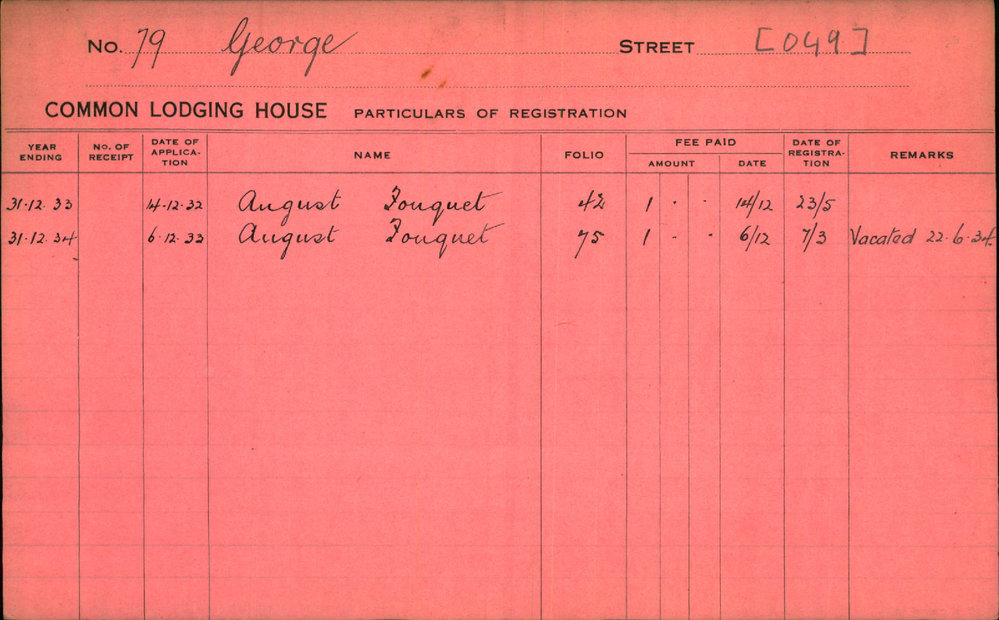 No. 79 George STREET [049]
COMMON LODGING HOUSE PARTICULARS OF REGISTRATION
YEAR ENDING No. OF RECEIPT DATE OF APPLICA- TION NAME FOLIO FEE PAID AMOUNT DATE DATE OF REGISTRA- TION REMARKS
31.12.33 14-12-32 August Fouquet 42 1 . - 14/12 23/5
31.12.34 6.12.33 August Fouquet 75 1 - - 6/12 7/3 Vacated 22.6.34.